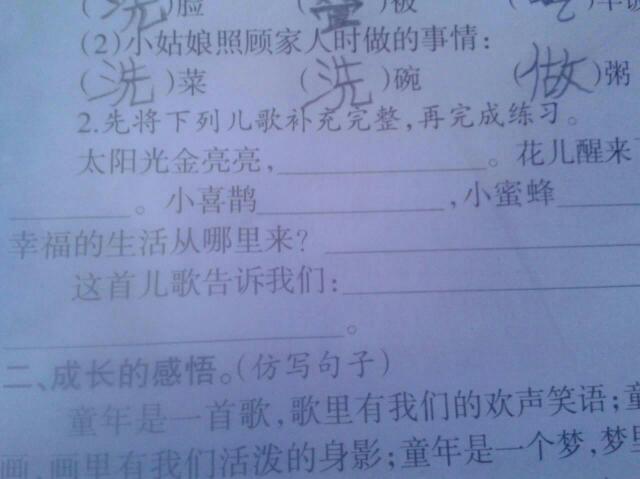 (洗)脸 (叠)被
(2)小姑娘照顾家人时做的事情：
(洗)菜 (洗)碗 (做)粥
2.先将下列儿歌补充完整,再完成练习。
太阳光金亮亮,____________。花儿醒来
________。小喜鹊____________,小蜜蜂____
幸福的生活从哪里来？____________________
这首儿歌告诉我们：____________________
______________________。
二、成长的感悟。(仿写句子)
童年是一首歌,歌里有我们的欢声笑语;童
画,画里有我们活泼的身影;童年是一个梦,梦里